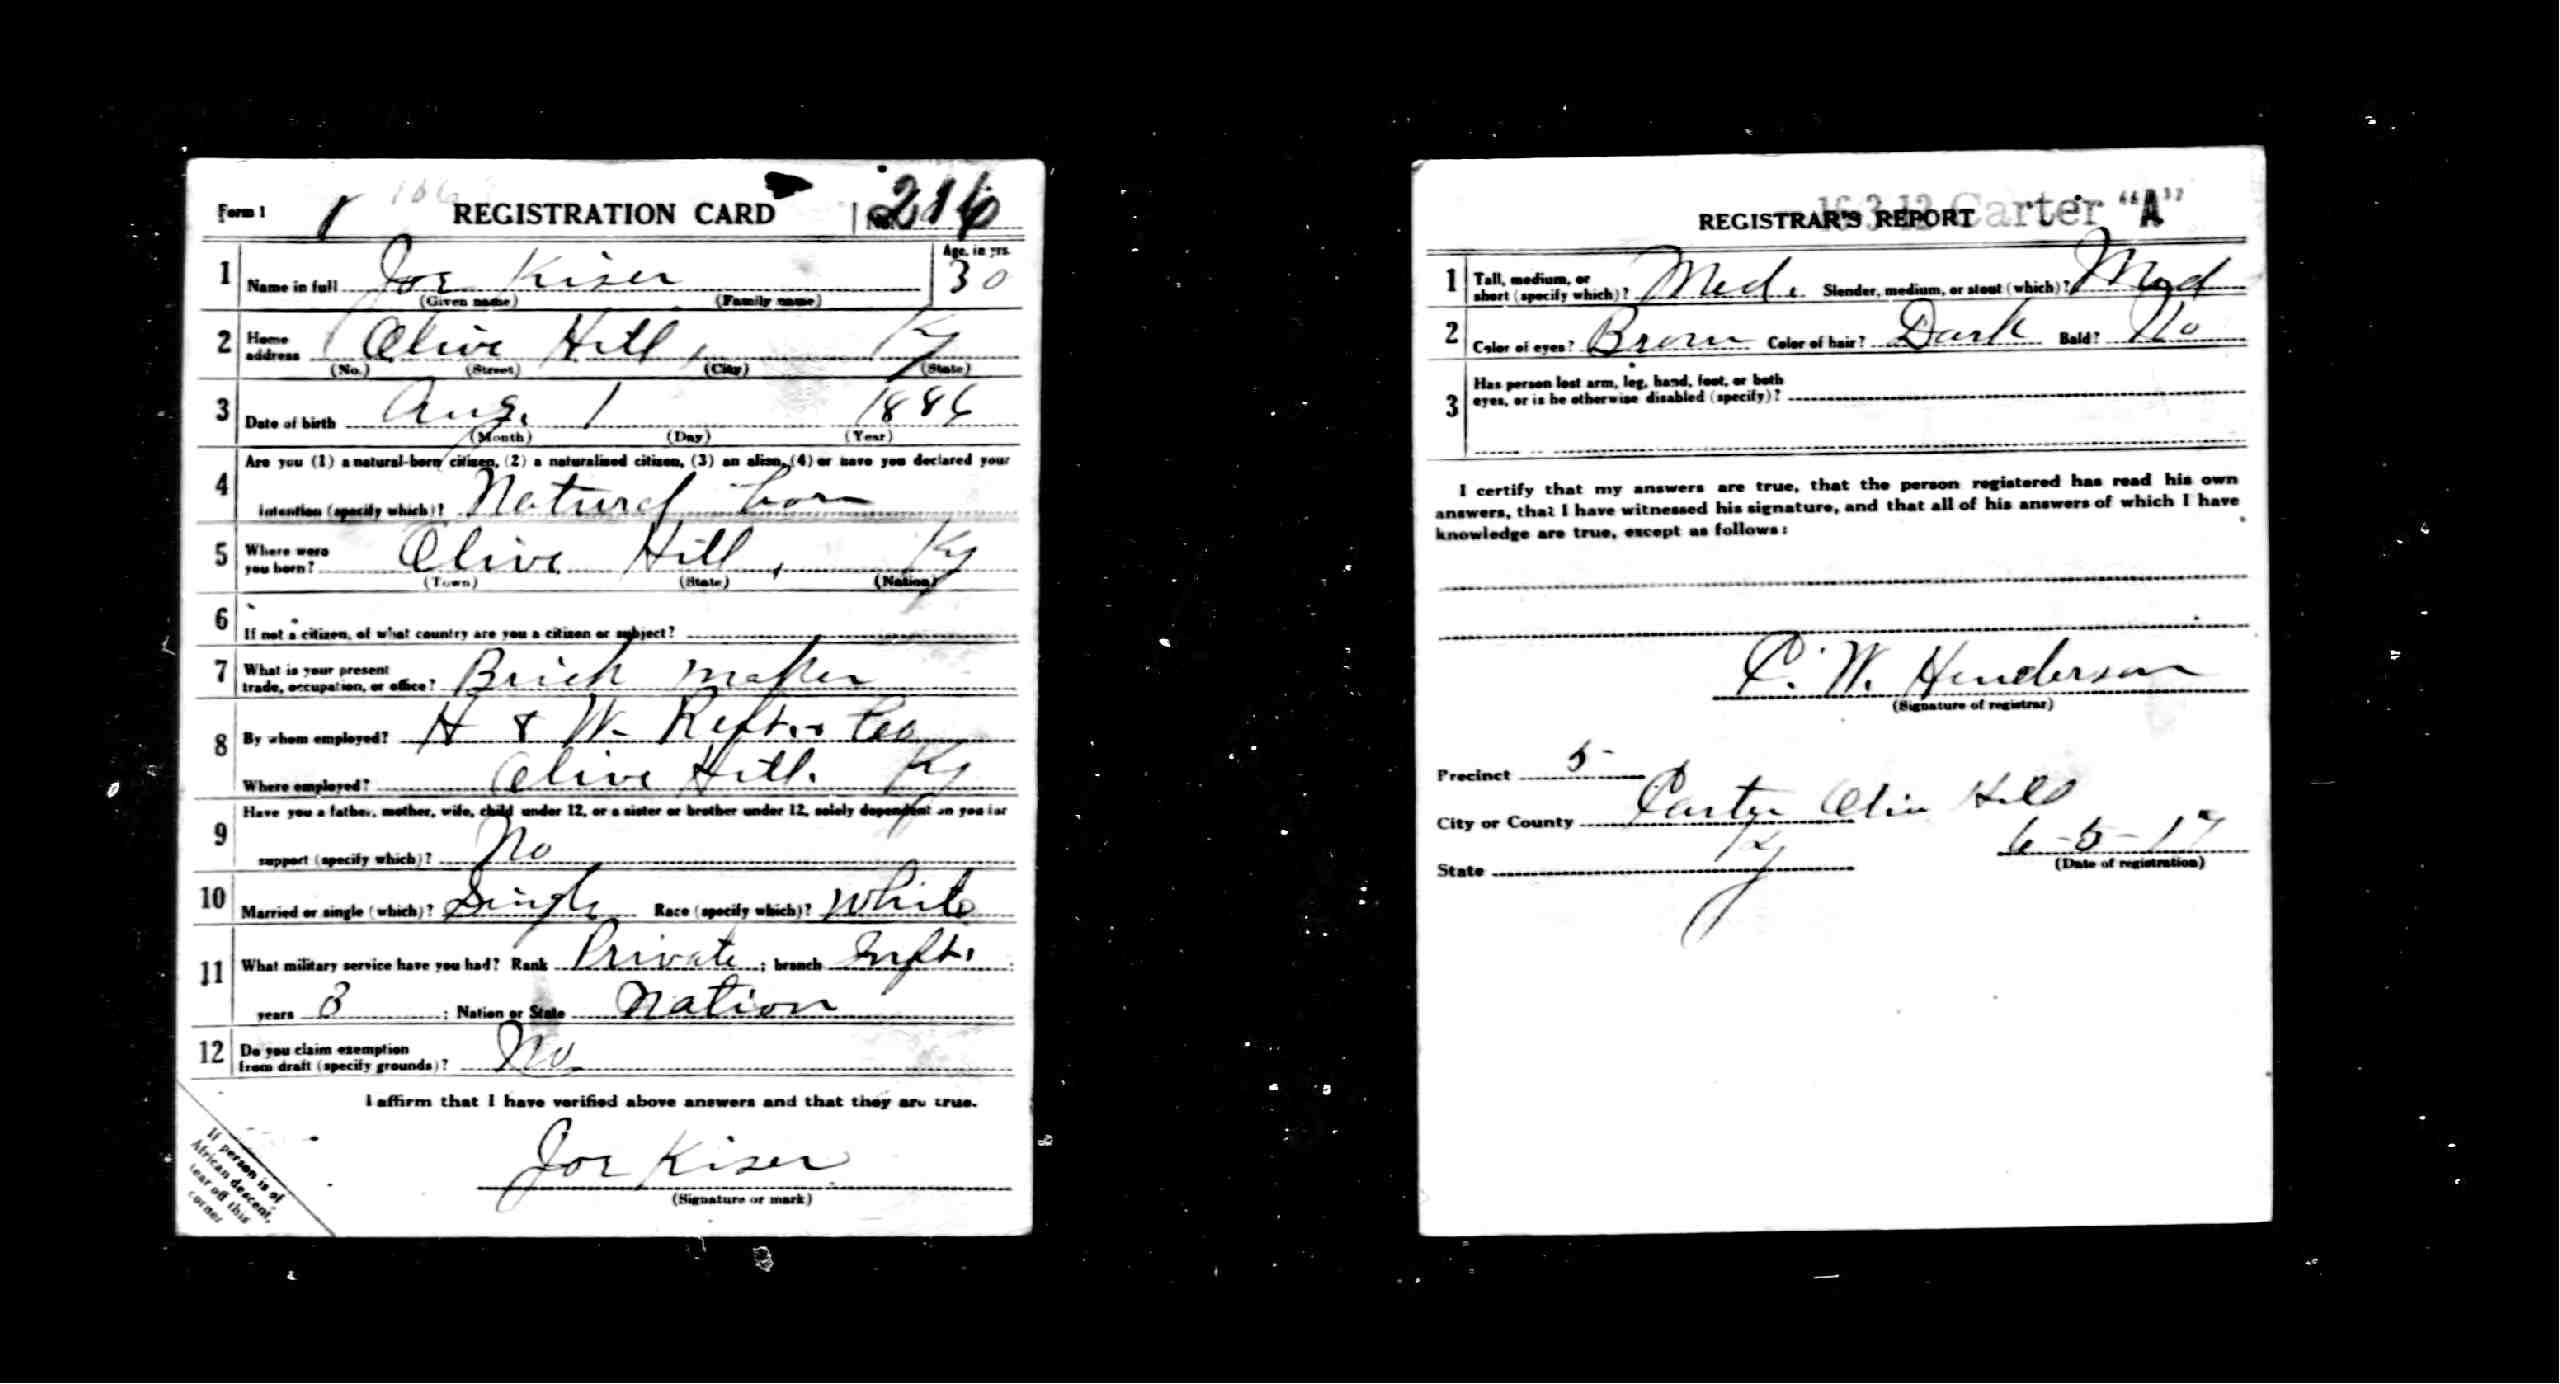 Form 1 1 166 REGISTRATION CARD No. 216
1 Name in full Joe Kiser Age, in yrs. 30
(Given name) (Family name)
2 Home address Olive Hill, Ky
(No.) (Street) (City) (State)
3 Date of birth Aug. 1 1886
(Month) (Day) (Year)
4 Are you (1) a natural-born citizen, (2) a naturalized citizen, (3) an alien, (4) or have you declared your
intention (specify which)? Natural born
5 Where were
you born? Olive Hill, Ky
(Town) (State) (Nation)
6 If not a citizen, of what country are you a citizen or subject?
7 What is your present
trade, occupation, or office? Brick maker
8 By whom employed? H & W. Reft. Co
Where employed? Olive Hill. Ky
9 Have you a father, mother, wife, child under 12, or a sister or brother under 12, solely dependent on you for
support (specify which)? No
10 Married or single (which)? Single Race (specify which)? White
11 What military service have you had? Rank Private ; branch Inft. ;
years 3 ; Nation or State Nation
12 Do you claim exemption
from draft (specify grounds)? No
I affirm that I have verified above answers and that they are true.
Joe Kiser
(Signature or mark)
If person is of
African descent,
tear off this
corner
16 3 12 Carter "A"
REGISTRAR'S REPORT
1 Tall, medium, or
short (specify which)? Med. Slender, medium, or stout (which)? Med
2 Color of eyes? Brown Color of hair? Dark Bald? No
3 Has person lost arm, leg, hand, foot, or both
eyes, or is he otherwise disabled (specify)?
I certify that my answers are true, that the person registered has read his own
answers, that I have witnessed his signature, and that all of his answers of which I have
knowledge are true, except as follows:
C. W. Henderson
(Signature of registrar)
Precinct 5
City or County Carter Olive Hill
State Ky 6-5-17
(Date of registration)